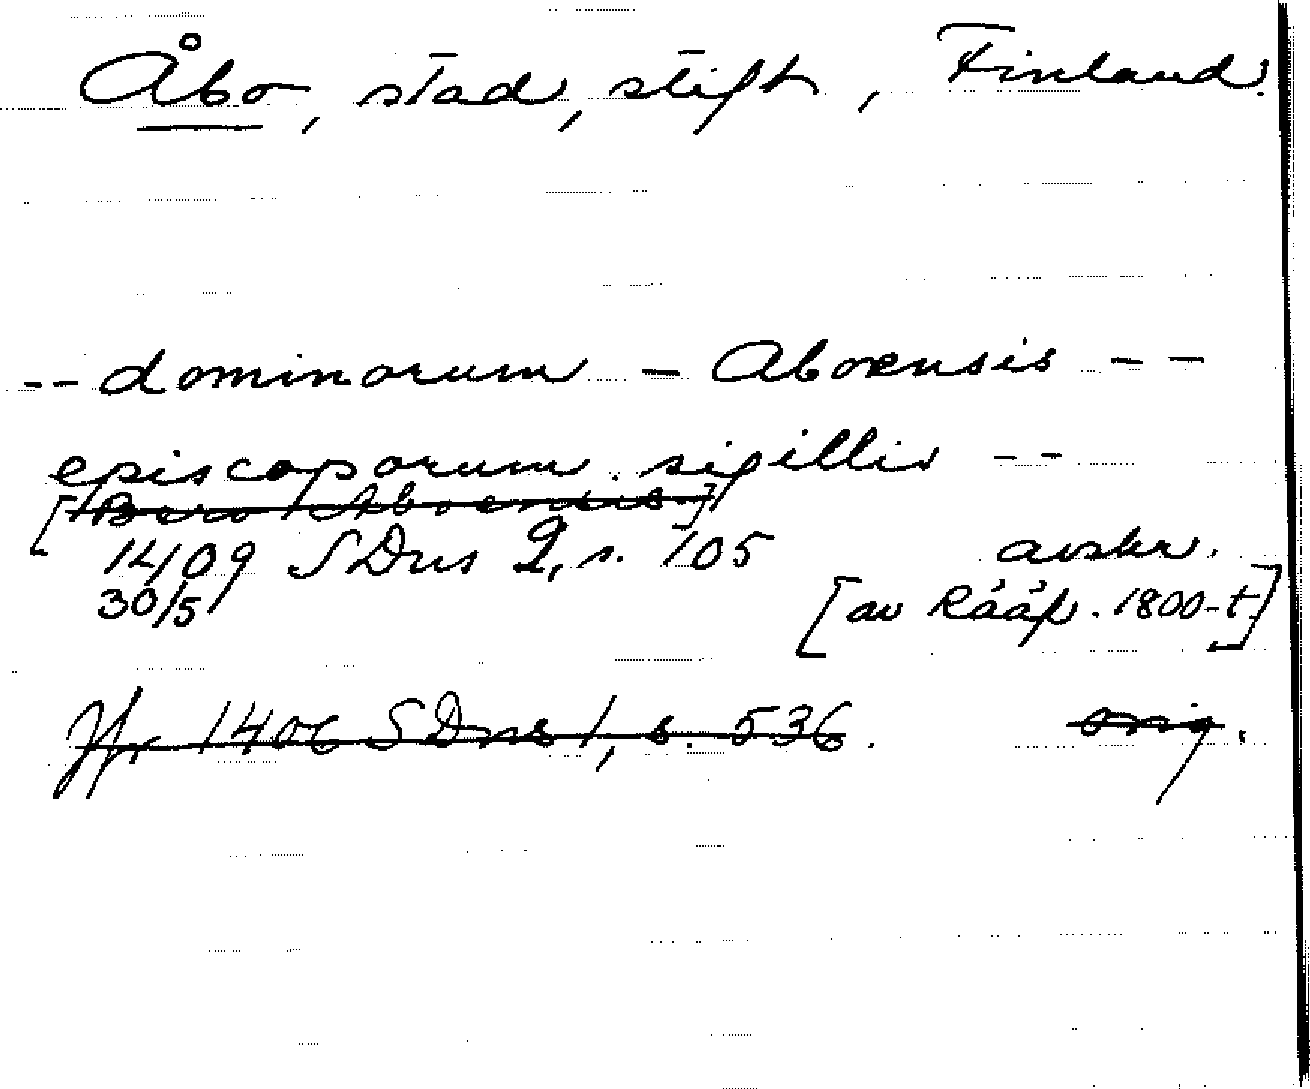 Åbo, stad, stift, Finland.
-- dominorum - Aboensis --
episcoporum sigillis --
[Bero Aboensis]
1409 SDns 2, s. 105 avskr.
30/5 [av Rääf. 1800-t]
Jfr 1406 SDns 1, s. 536. orig.